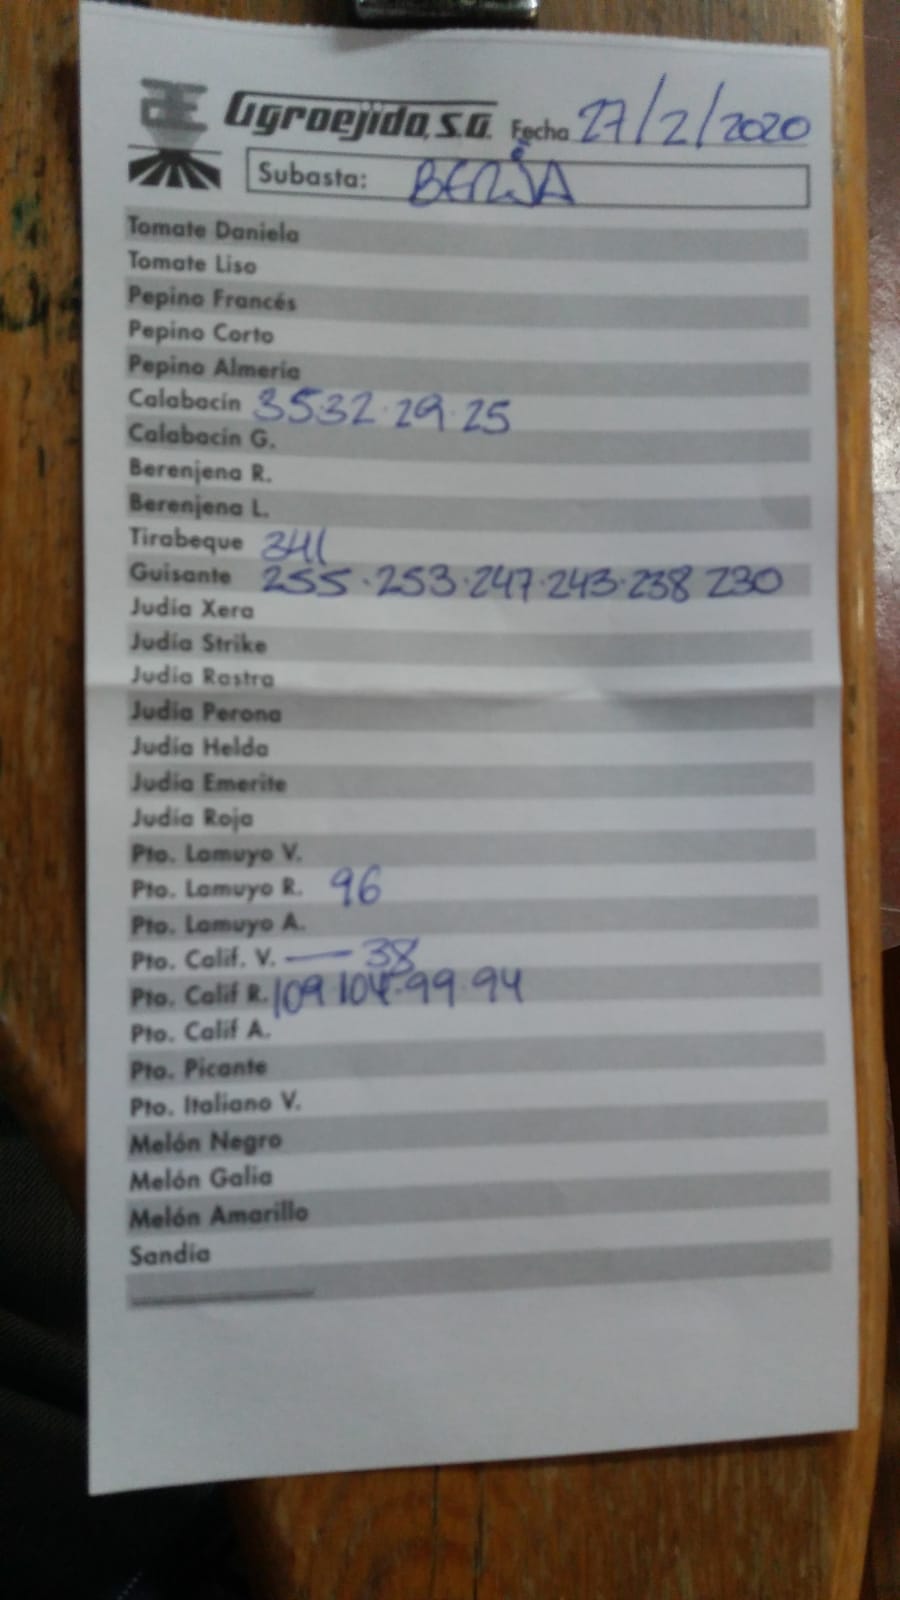 Agroejido, S.A. Fecha 27/2/2020
Subasta: BERJA
Tomate Daniela
Tomate Liso
Pepino Francés
Pepino Corto
Pepino Almería
Calabacín 35 32 · 29 · 25
Calabacín G.
Berenjena R.
Berenjena L.
Tirabeque 341
Guisante 255 · 253 · 247 · 243 · 238 230
Judía Xera
Judía Strike
Judía Rastra
Judía Perona
Judía Helda
Judía Emerite
Judía Roja
Pto. Lamuyo V.
Pto. Lamuyo R. 96
Pto. Lamuyo A.
Pto. Calif. V. — 38
Pto. Calif R. 109 · 104 · 99 · 94
Pto. Calif A.
Pto. Picante
Pto. Italiano V.
Melón Negro
Melón Galia
Melón Amarillo
Sandía